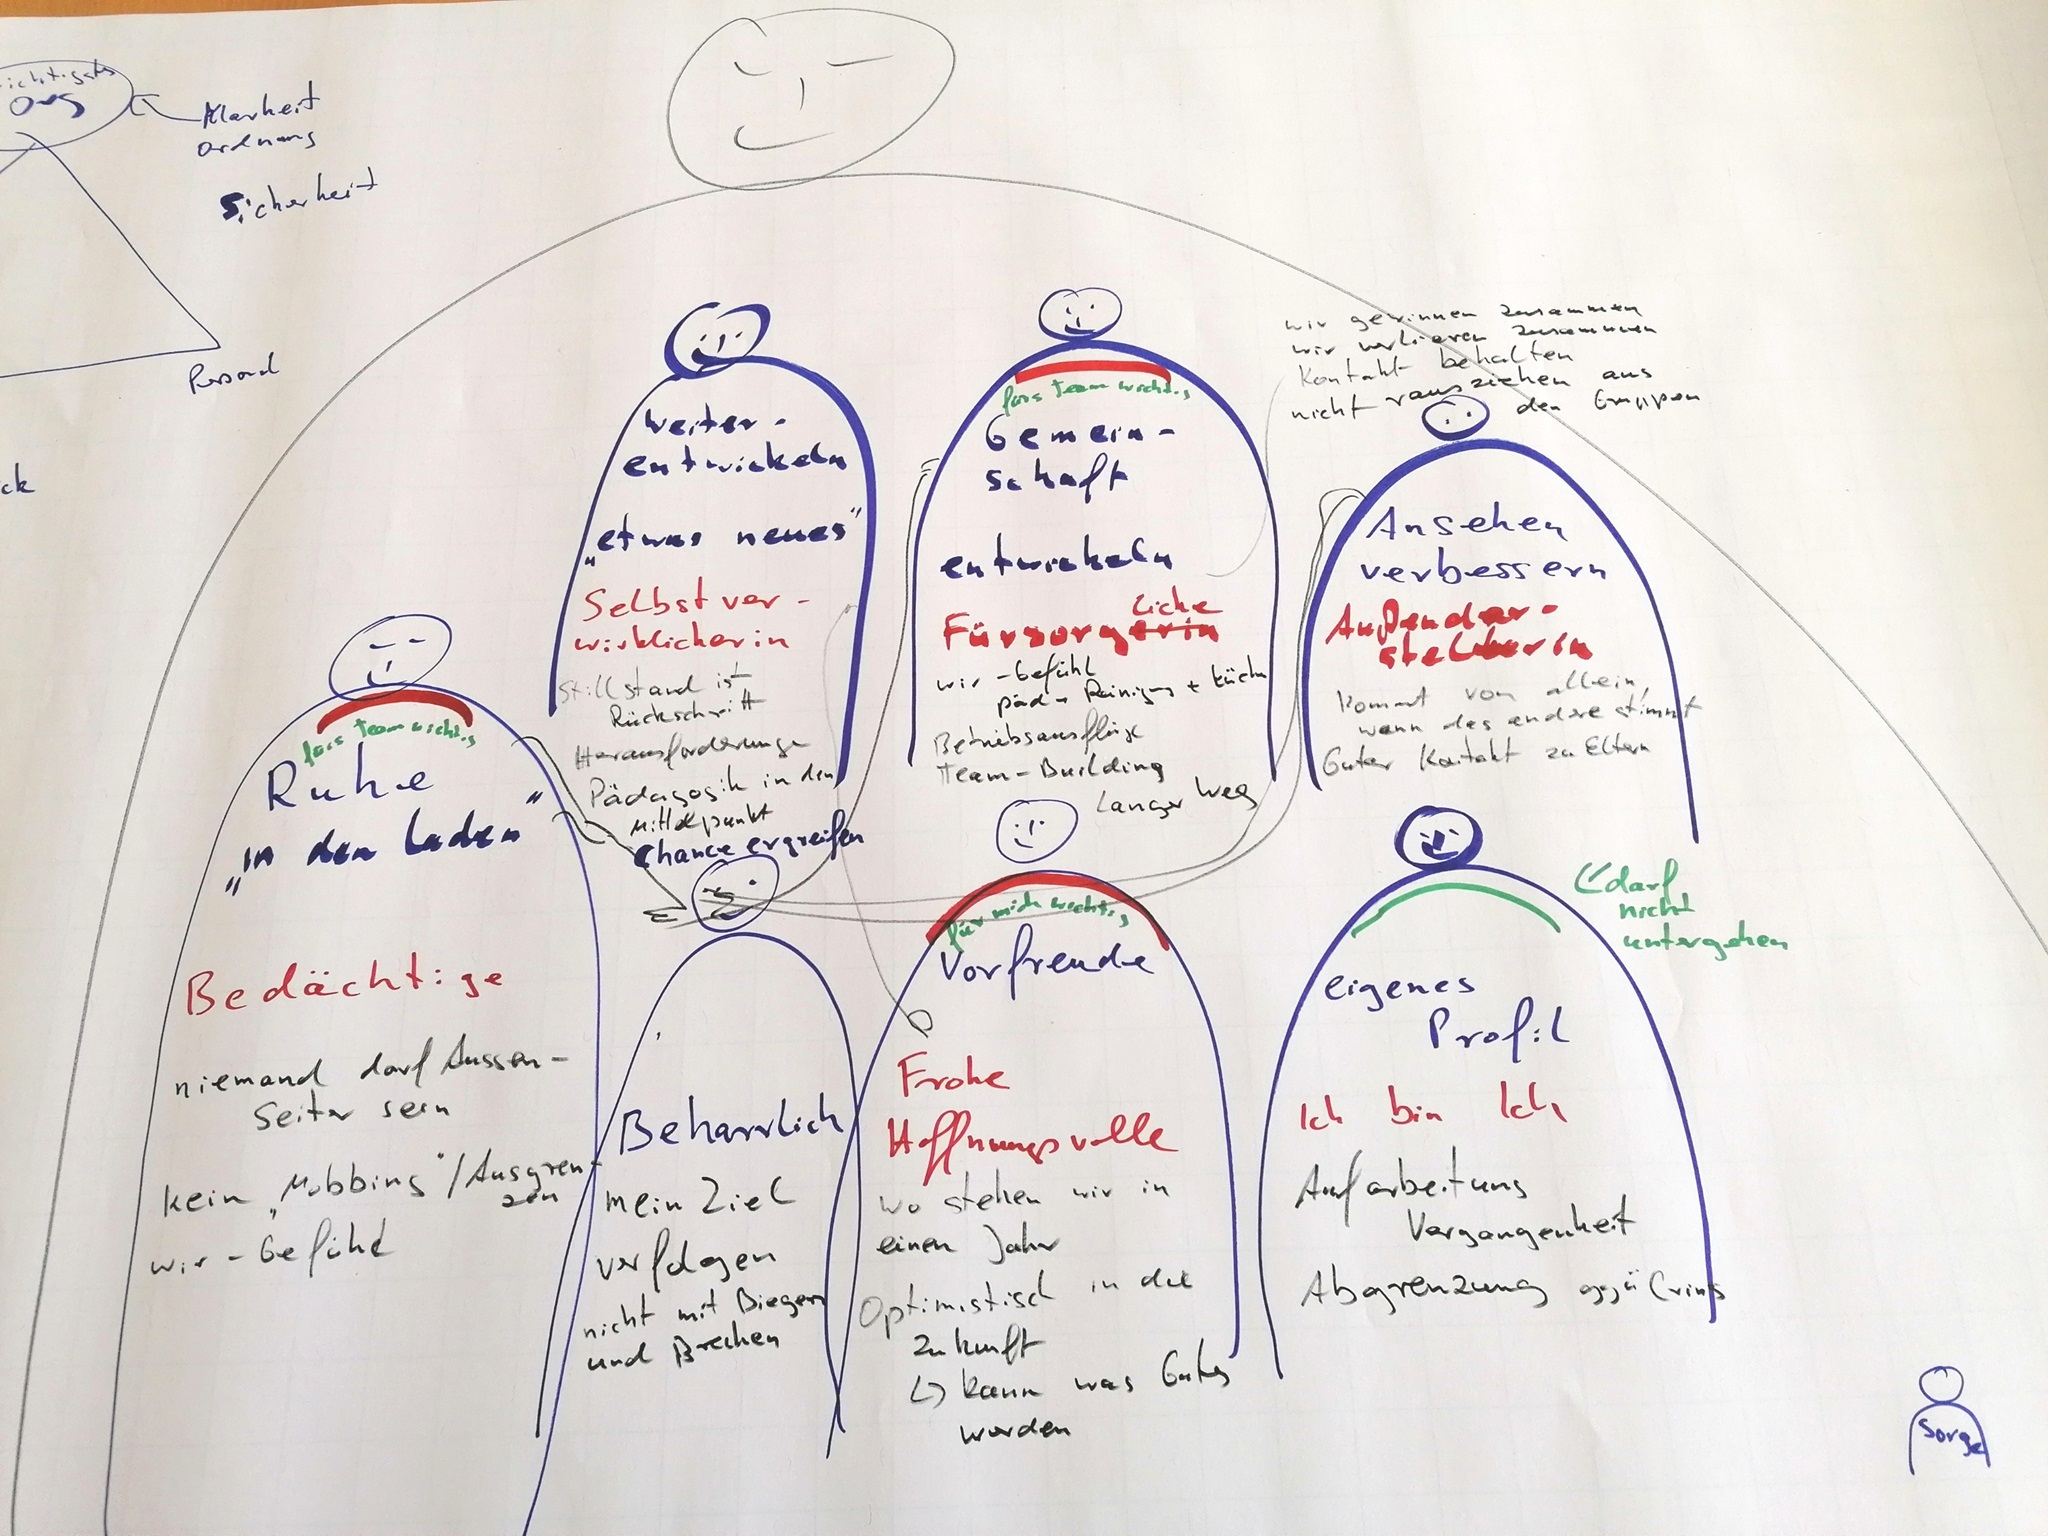 Klarheit
ordnung
Sicherheit
Personal
ck
weiter-
entwickeln
„etwas neues"
Selbstver-
wirklicherin
Stillstand ist
Rückschritt
Herausforderung
Pädagogik in den
Mittelpunkt
Chance ergreifen
fürs Team wichtig
Gemein-
schaft
entwickeln
liche
Fürsorgerin
wir-Gefühl
päd. Reinigung + Küche
Betriebsausflüge
Team-Building
Langer Weg
wir gewinnen zusammen
wir verlieren zusammen
Kontakt behalten
nicht rausziehen aus
den Gruppen
Ansehen
verbessern
Außendar-
stellerin
kommt von allein,
wenn das andere stimmt
Guter Kontakt zu Eltern
fürs Team wichtig
Ruhe
„in den Laden"
Bedächtige
niemand darf Aussen-
seiter sein
kein „Mobbing"/Ausgren-
zen
wir-Gefühl
Beharrlich
mein Ziel
verfolgen
nicht mit Biegen
und Brechen
für mich wichtig
Vorfreude
Frohe
Hoffnungsvolle
wo stehen wir in
einem Jahr
Optimistisch in die
Zukunft
↳ kann was Gutes
werden
darf
nicht
untergehen
eigenes
Profil
Ich bin Ich
Aufarbeitung
Vergangenheit
Abgrenzung
Sorge